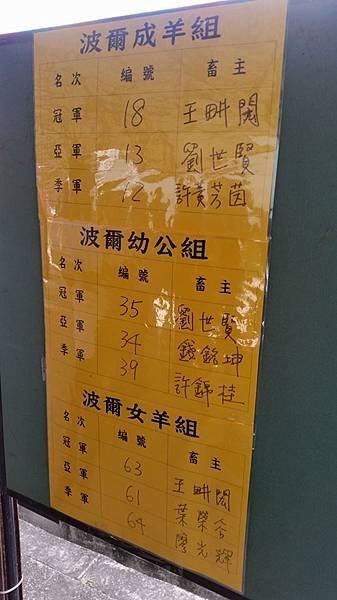 波爾成羊組
名次 編號 畜主
冠軍 18 王畊闊
亞軍 13 劉世賢
季軍 12 許黃芳茵
波爾幼公組
名次 編號 畜主
冠軍 35 劉世賢
亞軍 34 錢銘坤
季軍 39 許錦桂
波爾女羊組
名次 編號 畜主
冠軍 63 王畊闊
亞軍 61 葉榮
季軍 64 廖光輝